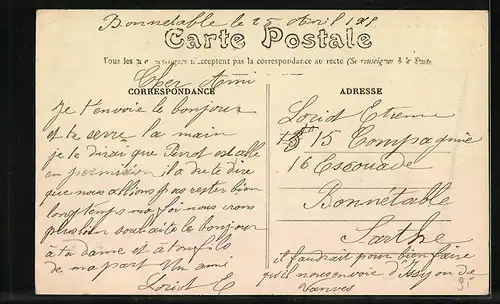 Bonnetable le 25 Avril
Carte Postale
Tous les pays étrangers n'acceptent pas la correspondance au recto (Se renseigner à la Poste
Cher Ami
CORRESPONDANCE
Je t'envoie le bonjour
et te serre la main
je te dirai que Perrot est allé
en permission il a du te dire
que nous allions pas rester bien
longtemps ma foi nous irons
plus loin souhaite le bonjour
à ta dame et à ton fils
de ma part Un ami
Loriot E
ADRESSE
Loriot Etienne
15 Compagnie
16 Escouade
Bonnétable
Sarthe
il faudrait pour bien faire
qu'il nous envoie d'Issy ou de
Vanves